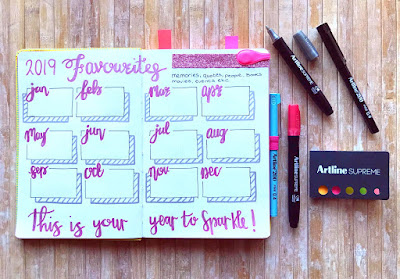 2019 Favourites
memories, quotes, people, books
movies, events etc.
jan feb mar apr
may jun jul aug
sep oct nov dec
This is your year to Sparkle!
Artline SUPREME